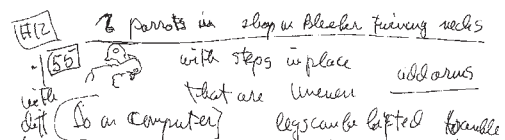 #12 8 parrots in shop on Bleeker turning necks
55 with steps in place add arms
with that are uneven
diff (So on Computer) legs can be lifted